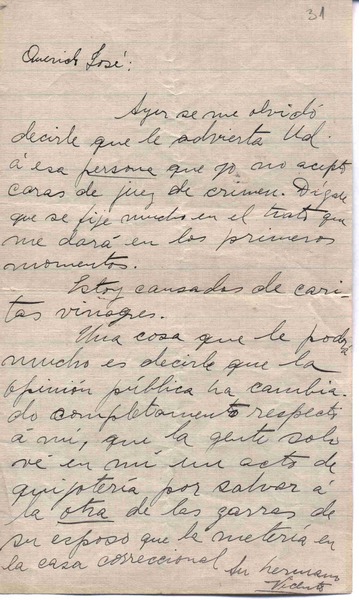 31
Querido José:
Ayer se me olvidó
decirle que le advierta Ud.
á esa persona que yo no acepto
caras de juez de crimen. Dígale
que se fije mucho en el trato que
me dará en los primeros
momentos.
Estoy cansados de cari
tas vinagres.
Una cosa que le podrá
mucho es decirle que la
opinión pública ha cambia-
do completamente respecto
á mi, que la gente solo
vé en mí un acto de
quijotería por salvar á
la otra de las garras de
su esposo que la metería en
la casa correccional Su hermano
Vicente